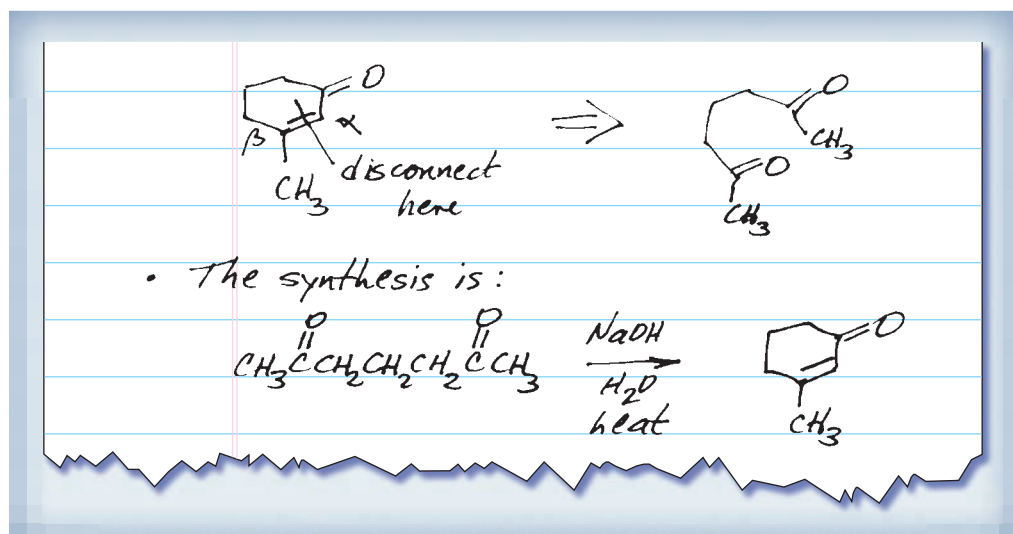 O
β α
CH3 disconnect
here
O
CH3
O
CH3
• The synthesis is :
O O
CH3CCH2CH2CH2CCH3
NaOH
H2O
heat
O
CH3